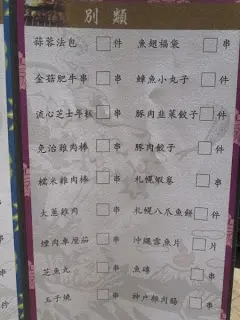 別類
蒜蓉法包 件 魚翅福袋 件
金菇肥牛串 串 鱆魚小丸子 串
流心芝士年糕 串 豚肉韮菜餃子 件
免治雞肉棒 串 豚肉餃子 件
糯米雞肉棒 串 札幌蝦拳 串
大蔥雞肉 串 札幌八爪魚餅 件
煙肉車厘茄 串 沖繩雪魚片 片
芝魚丸 串 魚磚 串
玉子燒 串 神户雞肉腸 串